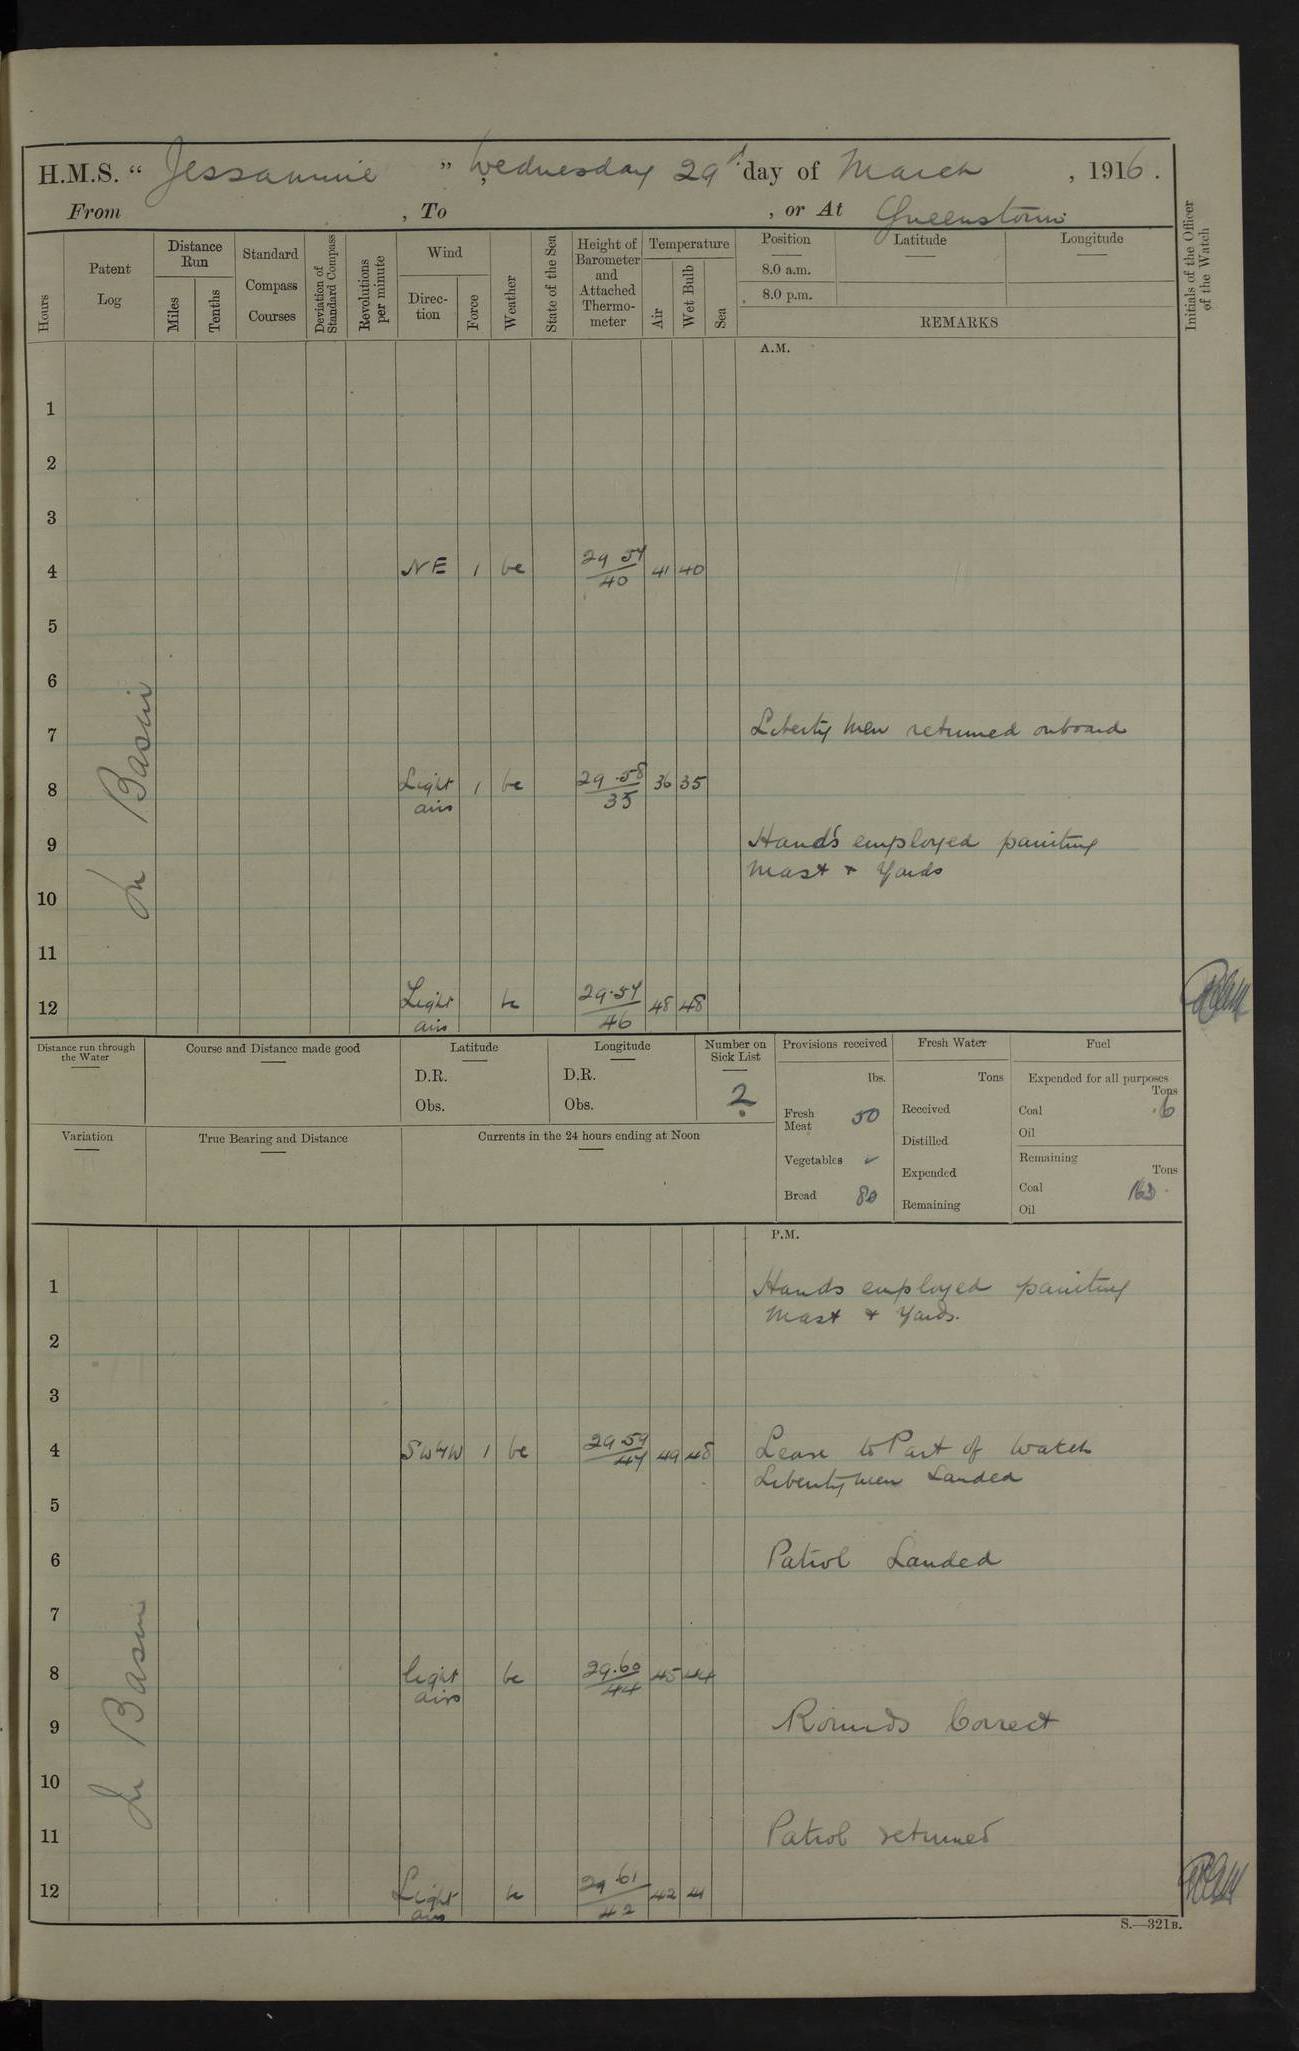 H.M.S. "Jessamine" Wednesday 29th day of March, 1916.
From , To , or At Queenstown
Hours
Patent Log
Distance Run
Miles
Tenths
Standard Compass Courses
Deviation of Standard Compass
Revolutions per minute
Wind
Direction
Force
Weather
State of the Sea
Height of Barometer and Attached Thermometer
Temperature
Air
Wet Bulb
Sea
Position Latitude Longitude
8.0 a.m.
8.0 p.m.
REMARKS
Initials of the Officer of the Watch
A.M.
1
2
3
4 NE 1 bc 29 54/40 41 40
5
6
In Basin
7 Liberty men returned onboard
8 Light airs 1 bc 29.58/35 36 35
9 Hands employed painting
Mast & Yards
10
11
12 Light airs 29.54/46 48 48
Distance run through the Water
Course and Distance made good
Latitude
D.R.
Obs.
Longitude
D.R.
Obs.
Number on Sick List
2
Provisions received
lbs.
Fresh Meat 50
Vegetables
Bread 80
Fresh Water
Tons
Received
Distilled
Expended
Remaining
Fuel
Expended for all purposes
Tons
Coal .6
Oil
Remaining
Tons
Coal 163.
Oil
Variation
True Bearing and Distance
Currents in the 24 hours ending at Noon
P.M.
1 Hands employed painting
Mast & Yards.
2
3
4 1 bc 49 48 Leave to Part of Watch
Liberty men Landed
5
6 Patrol Landed
7
In Basin
8 light airs bc 29.60/44 45 44
9 Rounds Correct
10
11 Patrol returned
12 Light airs 29.61/42 42 41
S.—321B.